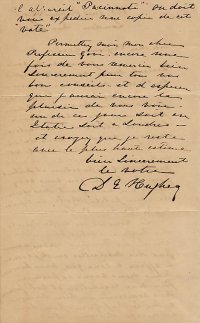 à l'appareil "Pacinnoti". On doit
vous expédier une copie de cet
"vote"
Permettez moi, mon cher
Professeur Govi encore une
fois de vous remercier bien
sincerement pour tous vos
bon conseils et d'esperer
que j'aurai encore le
plaisir de vous voir
un de ces jours soit en
Italie soit à Londres
et croyez que je reste
avec la plus haute estime
bien sincerement
le votre
D E Hughes